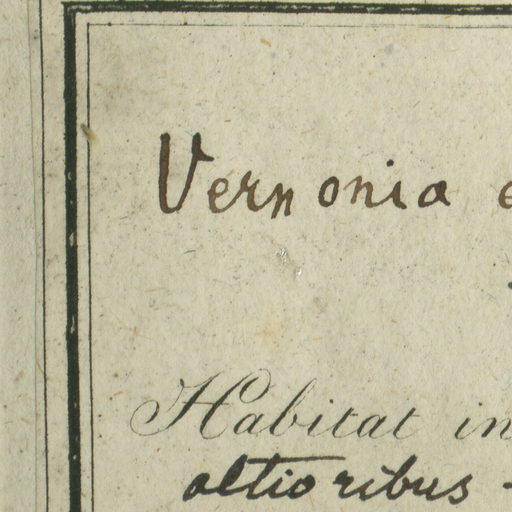 Vernonia e
Habitat in
altioribus -